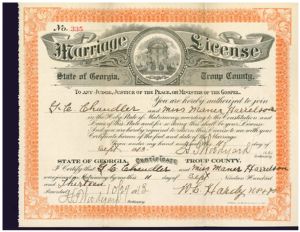 No. 335
Marriage License
State of Georgia, Troup County.
TO ANY JUDGE, JUSTICE OF THE PEACE, OR MINISTER OF THE GOSPEL.
You are hereby authorized to join
G. C. Chandler and Miss Maner Harrelson
in the Holy State of Matrimony according to the Constitution and
Laws of this State and for so doing this shall be your License
And you are hereby required to return this License to me with your
Certificate hereon of the fact and date of the Marriage
Given under my hand and seal this
Sept
STATE OF GEORGIA, Certificate TROUP COUNTY.
I Certify that G. C. Chandler and Miss Maner Harrelson
were joined in Matrimony by me this 11 day of Sept Nineteen Hundred
and Thirteen
W. C. Hardy